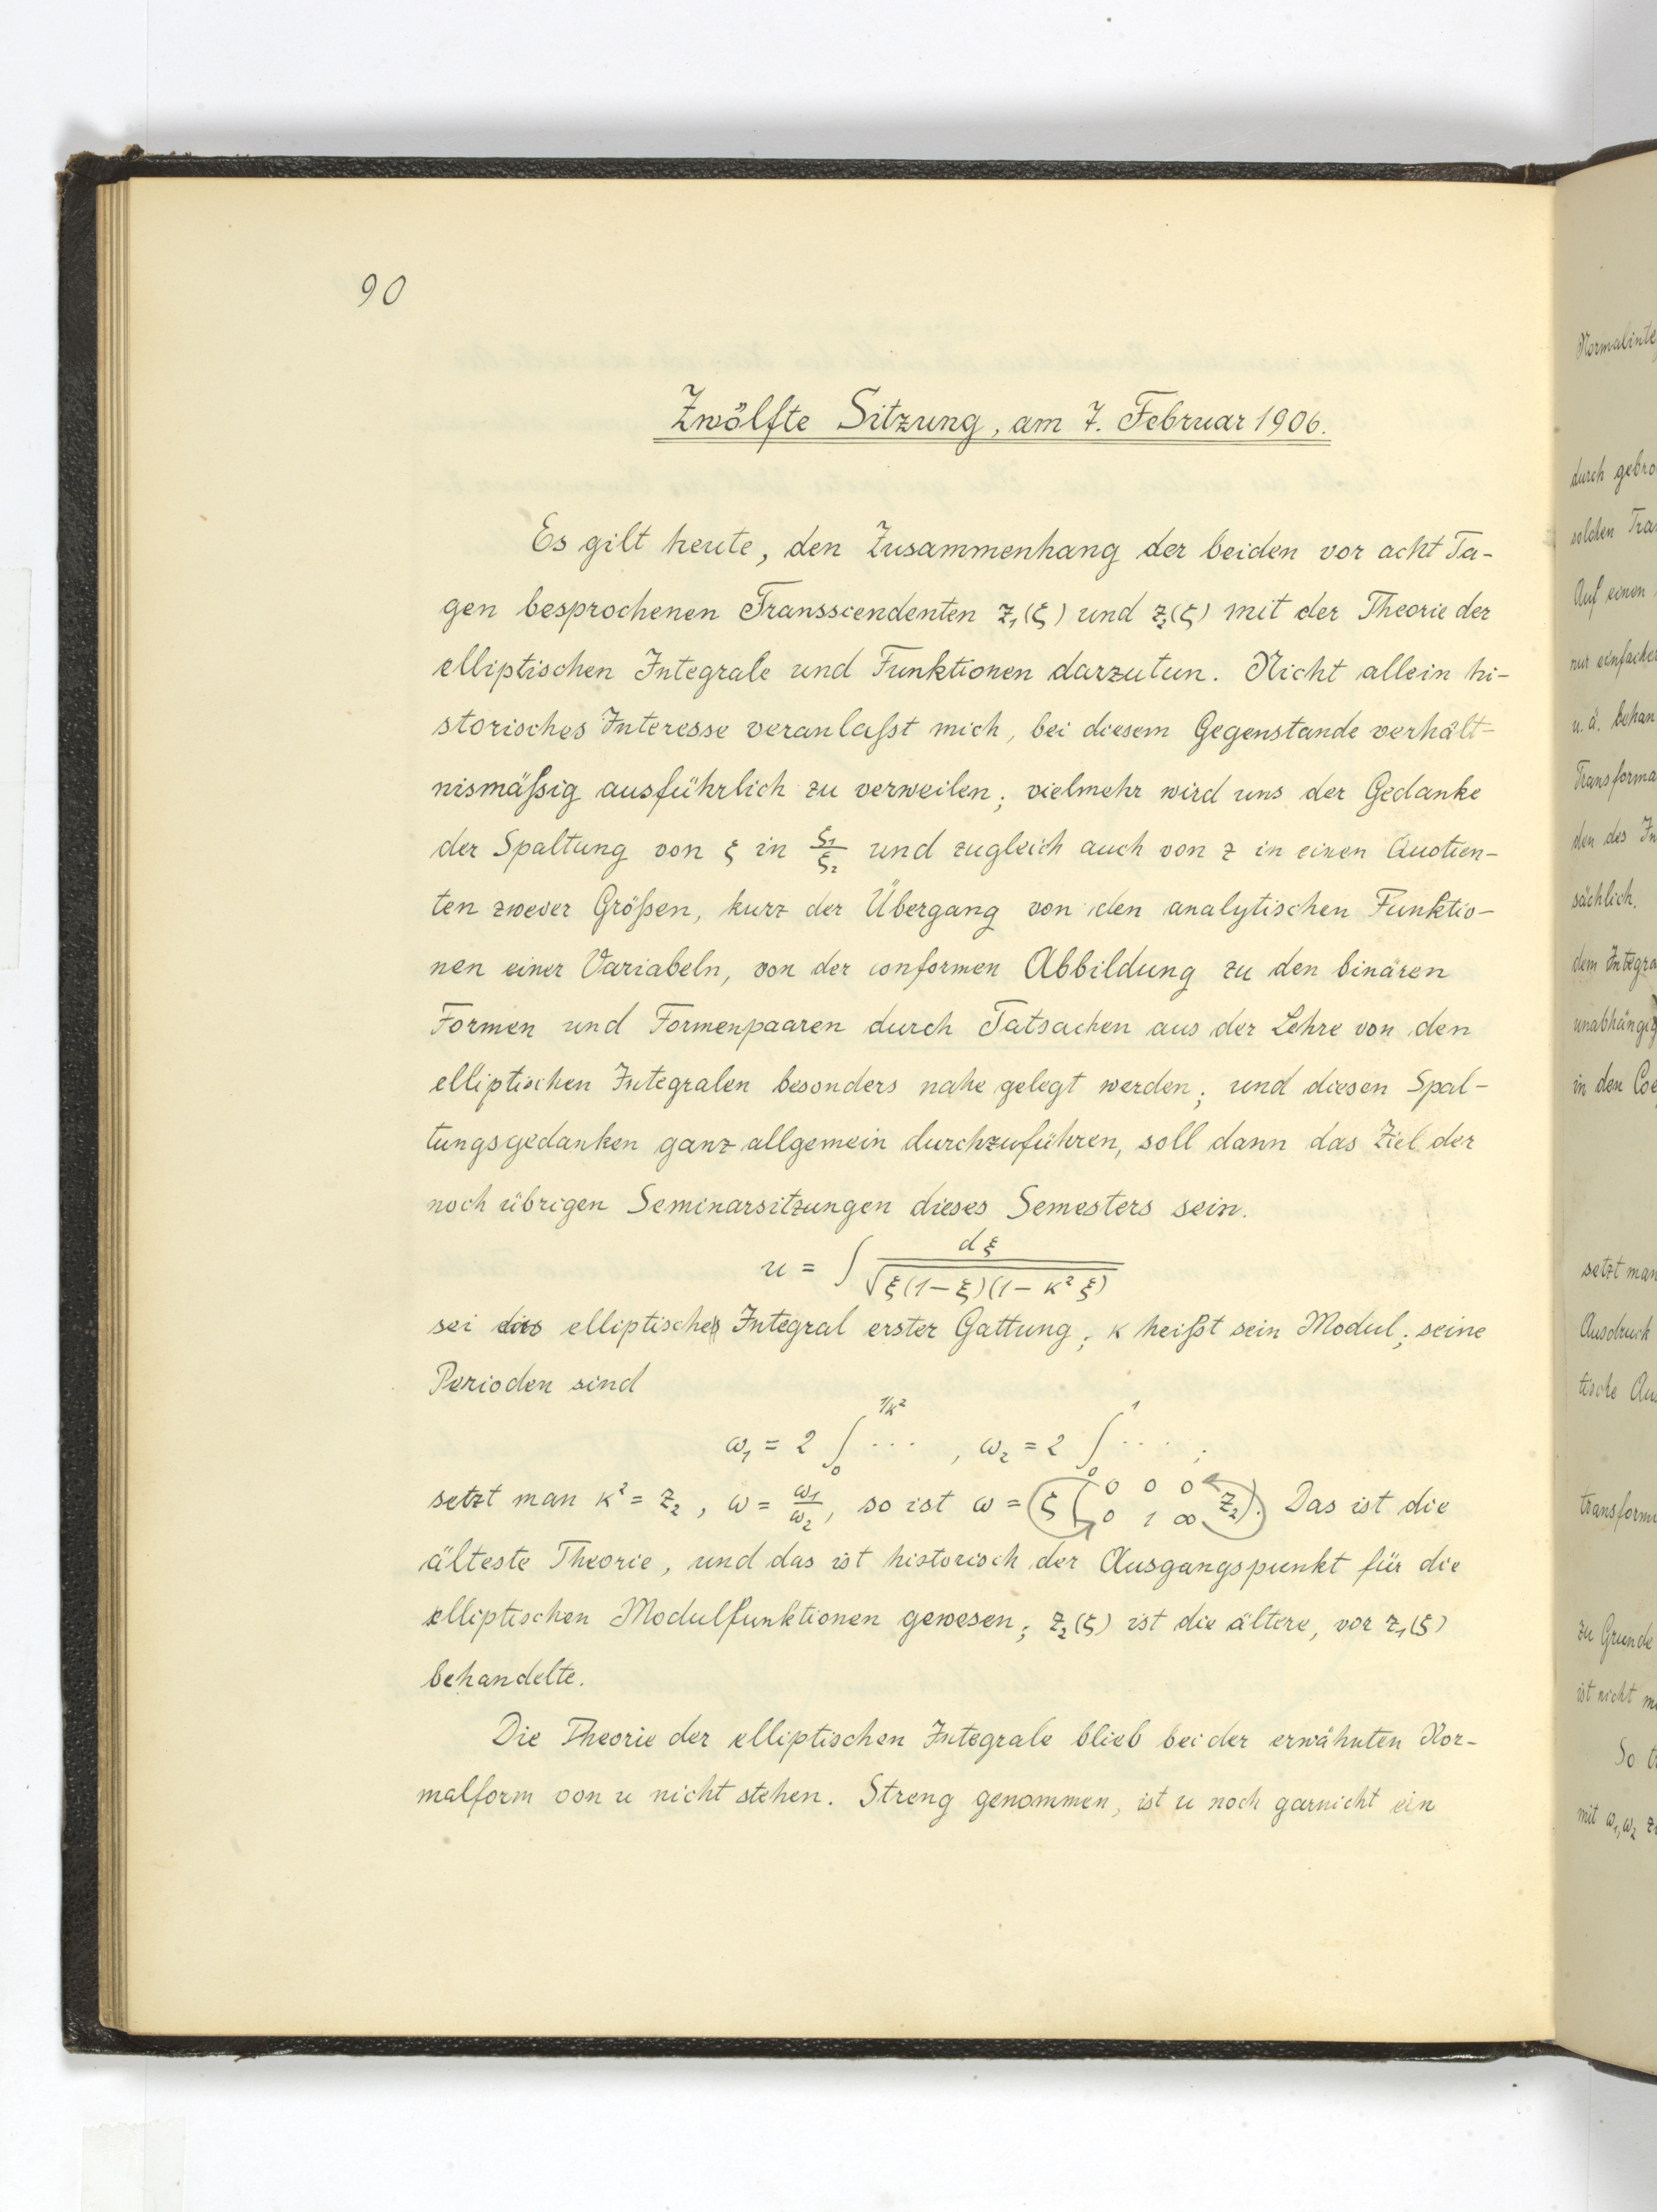 90
Zwölfte Sitzung, am 7. Februar 1906.
Es gilt heute, den Zusammenhang der beiden vor acht Ta-
gen besprochenen Transscendenten z₁(ξ) und z₂(ξ) mit der Theorie der
elliptischen Integrale und Funktionen darzutun. Nicht allein hi-
storisches Interesse veranlaßt mich, bei diesem Gegenstande verhält-
nismäßig ausführlich zu verweilen; vielmehr wird uns der Gedanke
der Spaltung von ξ in ξ₁/ξ₂ und zugleich auch von z in einen Quotien-
ten zweier Größen, kurz der Übergang von den analytischen Funktio-
nen einer Variabeln, von der conformen Abbildung zu den binären
Formen und Formenpaaren durch Tatsachen aus der Lehre von den
elliptischen Integralen besonders nahe gelegt werden; und diesen Spal-
tungsgedanken ganz allgemein durchzuführen, soll dann das Ziel der
noch übrigen Seminarsitzungen dieses Semesters sein.
u = ∫ dξ / √ξ(1-ξ)(1-κ²ξ)
sei das elliptische Integral erster Gattung; κ heißt sein Modul; seine
Perioden sind
ω₁ = 2 ∫₀^{1/κ²} ... , ω₂ = 2 ∫₀^1 .... ;
setzt man κ² = z₂, ω = ω₁/ω₂, so ist ω = ξ(0 0 0 / 0 1 ∞ z₂). Das ist die
älteste Theorie, und das ist historisch der Ausgangspunkt für die
elliptischen Modulfunktionen gewesen; z₂(ξ) ist die ältere, vor z₁(ξ)
behandelte.
Die Theorie der elliptischen Integrale blieb bei der erwähnten Nor-
malform von u nicht stehen. Streng genommen, ist u noch garnicht ein
durch
solchen
Auf einen
nur
u. ä.
den des
sächlich.
dem
in den
setzt man
Ausdruck
tische
zu Grunde
ist nicht
So
mit ω₁, ω₂